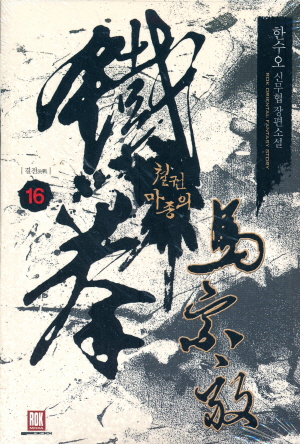 한수오 신무협 장편소설
ROK ORIENTAL FANTASY STORY
鐵拳
철권
마종의
馬宗毅
결전
16
ROK